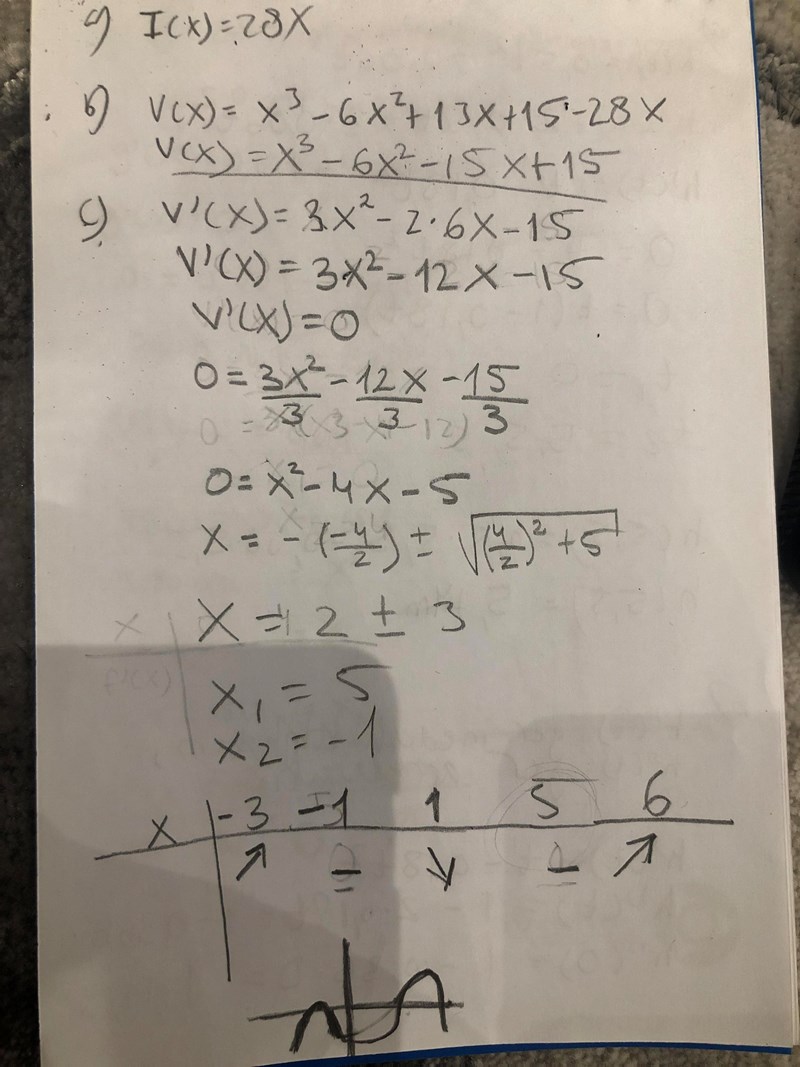 a) I(x)=28x
b) V(x)= x³-6x²+13x+15-28x
V(x)=x³-6x²-15x+15
c) V'(x)=3x²-2·6x-15
V'(x)=3x²-12x-15
V'(x)=0
0=3x²/3-12x/3-15/3
0=x²-4x-5
x=-(-4/2)±√((4/2)²+5)
x=2±3
x₁=5
x₂=-1
x | -3 -1 1 5 6
↗ - ↘ - ↗